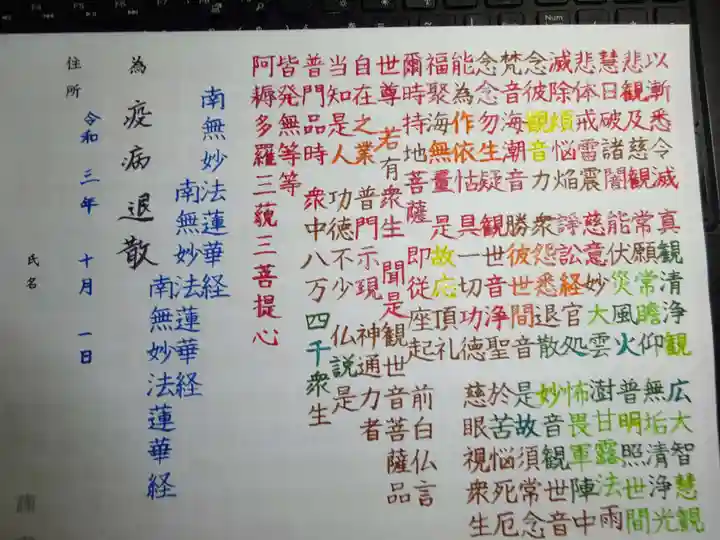 以漸悉令滅 真観清浄観 広大智慧観
悲観及慈観 常願常瞻仰 無垢清浄光
慧日破諸闇 能伏災風火 普明照世間
悲体戒雷震 慈意妙大雲 澍甘露法雨
滅除煩悩焔 諍訟経官処 怖畏軍陣中
念彼観音力 衆怨悉退散 妙音観世音
梵音海潮音 勝彼世間音 是故須常念
念念勿生疑 観世音浄聖 於苦悩死厄
能為作依怙 具一切功徳 慈眼視衆生
福聚海無量 是故応頂礼
爾時持地菩薩 即從座起 前白仏言
世尊 若有衆生 聞是観世音菩薩品
自在之業 普門示現 神通力者
当知是人 功徳不少 仏説是
普門品時 衆中八万四千衆生
皆発無等等
阿耨多羅三藐三菩提心
南無妙法蓮華経
南無妙法蓮華経
南無妙法蓮華経
為 疫病退散
令和三年 十月 一日
住所 氏名